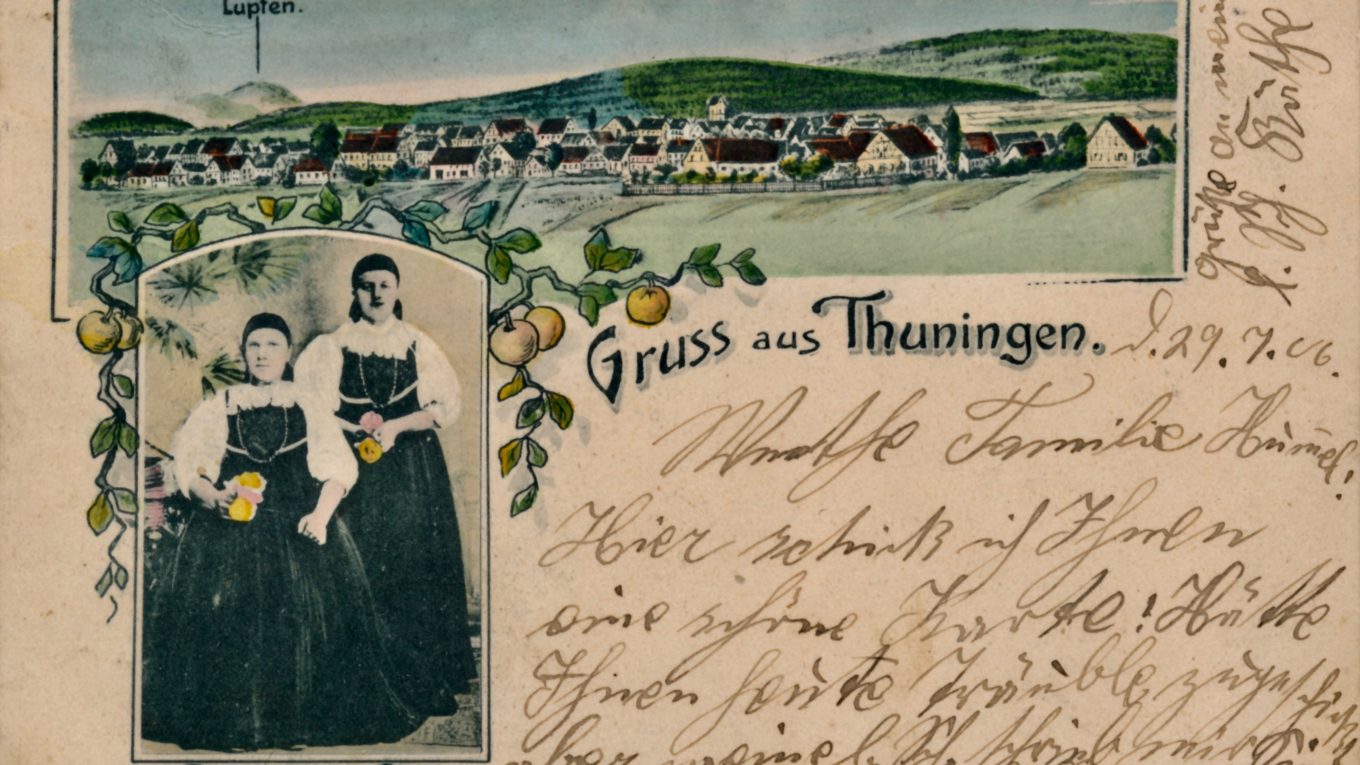 Lupfen.
Gruss aus Thuningen.
d. 29. 7. 06.
Werthe Familie Hummel!
Hier schick ich Ihnen
eine schöne Karte! Hätte
Ihnen heute Träuble zugeschickt
aber meine l. Sch. schrieb mir
Grüße an mein